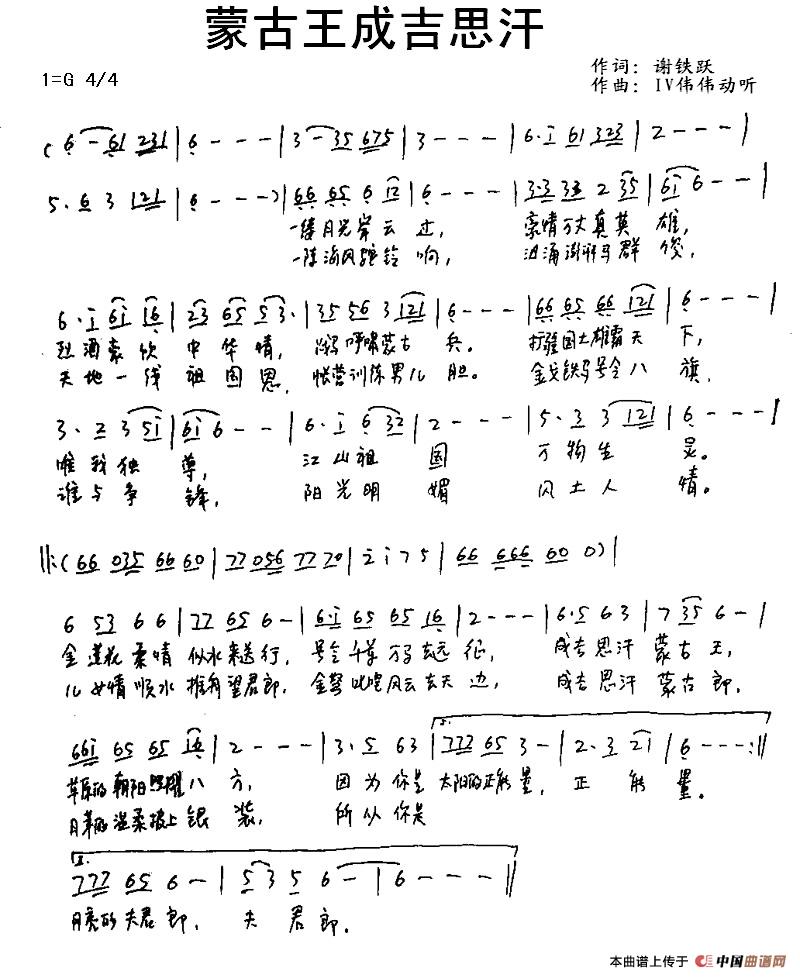 蒙古王成吉思汗
作词：谢铁跃
1=G 4/4
作曲：IV伟伟动听
( 6 - 61 231 | 6 - - - | 3 - 35 675 | 3 - - - | 6· i 61 323 | 2 - - - |
5· 6 3 121 | 6 - - - ) | 66 65 6 12 | 6 - - - | 3·3 33 2 35 | 6i 6 - - |
一缕月光 云过， 豪情万丈真英雄，
一阵海风驼铃响， 汹涌澎湃马群
6· i 6i 16 | 23 65 53· | 35 56 3 121 | 6 - - - | 66 65 66 121 | 6 - - - |
烈酒豪饮中华情， 呼啸蒙古兵。 打疆固土雄霸天下，
天地一线祖国恩， 帐营训练男儿胆。 金戈铁马号令八旗，
3· 2 3 5i | 6i 6 - - | 6· i 6 32 | 2 - - - | 5· 3 3 121 | 6 - - - |
唯我独尊， 江山祖国 万物生灵。
谁与争锋， 阳光明媚 风土人情。
||: ( 66 035 66 60 | 77 056 77 70 | 2 i 7 5 | 66 666 60 0 ) |
6 53 6 6 | 77 65 6 - | 6·i 65 65 16 | 2 - - - | 6· 5 6 3 | 7 35 6 - |
金莲花柔情似水来送行， 号令千军万马去远征， 成吉思汗蒙古王，
儿女情顺水推舟望君郎， 金弩叱咤风云去天边， 成吉思汗蒙古郎，
66i 65 65 16 | 2 - - - | 3· 5 63 | 1. 777 65 3 - | 2· 3 2i | 6 - - - :||
草原的朝阳照耀八方， 因为你是太阳的正能量， 正能量。
月華的温柔披上银装， 所以你是
2. 777 65 6 - | 5 3 5 6 - | 6 - - - ||
月亮的夫君郎， 夫君郎。
本曲谱上传于 中国曲谱网